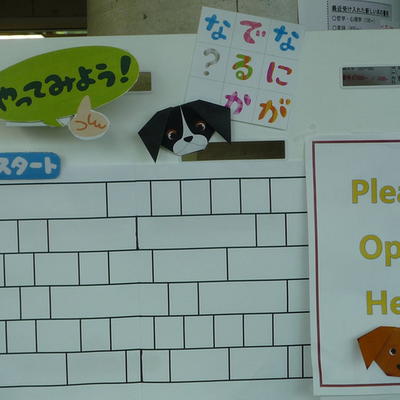 やってみよう!
なにが
でるか
な?
スタート
Plea
Op
He